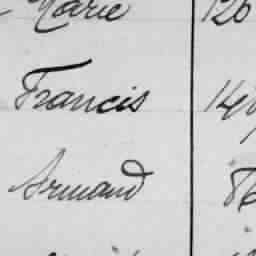 Marie 126
Francis 149
Armand 86